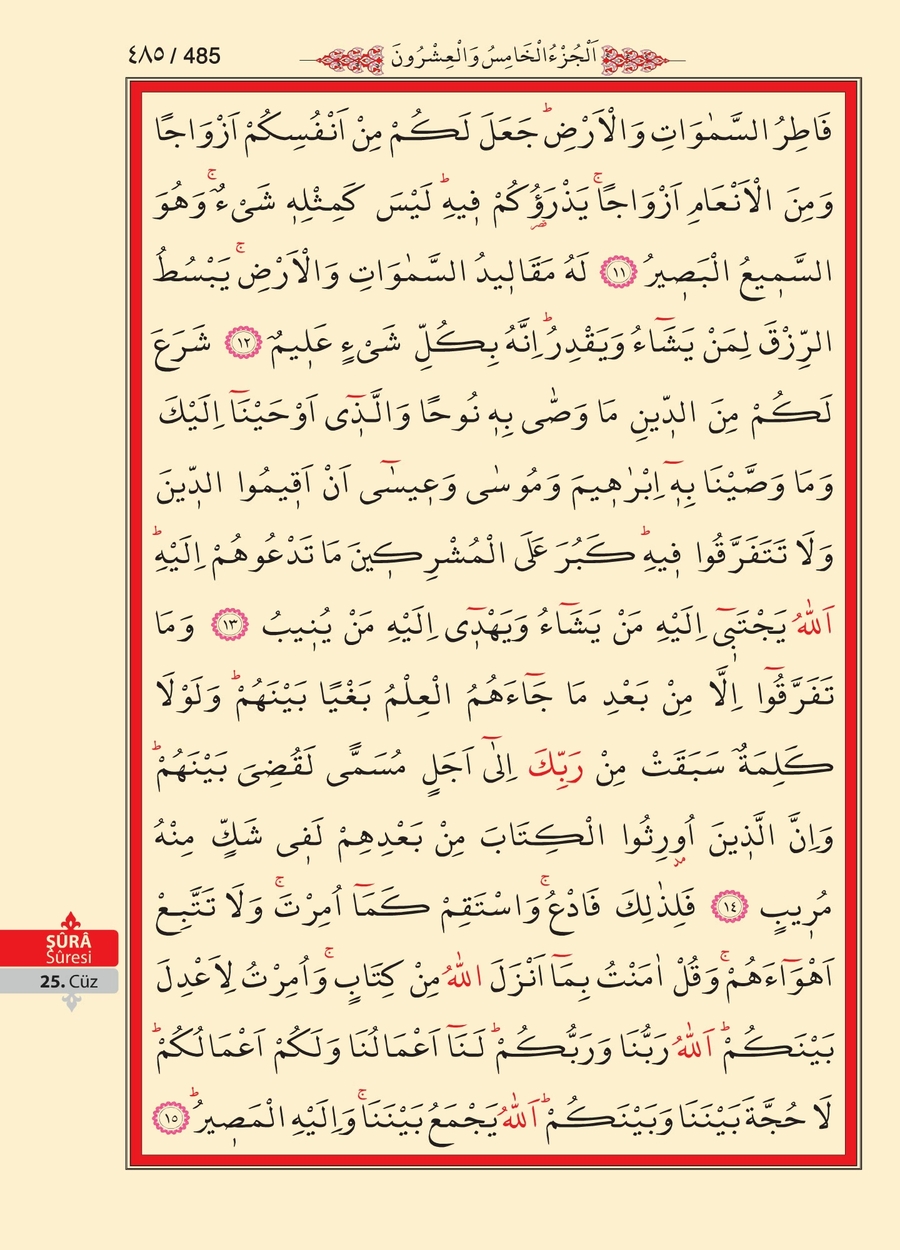 ٤٨٥ / 485
اَلْجُزْءُ الْخَامِسُ وَالْعِشْرُونَ
فَاطِرُ السَّمٰوَاتِ وَالْاَرْضِۜ جَعَلَ لَكُمْ مِنْ اَنْفُسِكُمْ اَزْوَاجًا
وَمِنَ الْاَنْعَامِ اَزْوَاجًاۚ يَذْرَؤُ۬كُمْ ف۪يهِۜ لَيْسَ كَمِثْلِه۪ شَیْءٌۚ وَهُوَ
السَّم۪يعُ الْبَص۪يرُ ﴿١١﴾ لَهُ مَقَال۪يدُ السَّمٰوَاتِ وَالْاَرْضِۚ يَبْسُطُ
الرِّزْقَ لِمَنْ يَشَٓاءُ وَيَقْدِرُۜ اِنَّهُ بِكُلِّ شَیْءٍ عَل۪يمٌ ﴿١٢﴾ شَرَعَ
لَكُمْ مِنَ الدّ۪ينِ مَا وَصّٰى بِه۪ نُوحًا وَالَّذ۪ٓى اَوْحَيْنَٓا اِلَيْكَ
وَمَا وَصَّيْنَا بِه۪ٓ اِبْرٰه۪يمَ وَمُوسٰى وَع۪يسٰٓى اَنْ اَق۪يمُوا الدّ۪ينَ
وَلَا تَتَفَرَّقُوا ف۪يهِۜ كَبُرَ عَلَى الْمُشْرِك۪ينَ مَا تَدْعُوهُمْ اِلَيْهِۜ
اَللّٰهُ يَجْتَب۪ٓى اِلَيْهِ مَنْ يَشَٓاءُ وَيَهْد۪ٓى اِلَيْهِ مَنْ يُن۪يبُ ﴿١٣﴾ وَمَا
تَفَرَّقُٓوا اِلَّا مِنْ بَعْدِ مَا جَٓاءَهُمُ الْعِلْمُ بَغْيًا بَيْنَهُمْۜ وَلَوْلَا
كَلِمَةٌ سَبَقَتْ مِنْ رَبِّكَ اِلٰٓى اَجَلٍ مُسَمًّى لَقُضِىَ بَيْنَهُمْۜ
وَاِنَّ الَّذ۪ينَ اُو۫رِثُوا الْكِتَابَ مِنْ بَعْدِهِمْ لَف۪ى شَكٍّ مِنْهُ
مُر۪يبٍ ﴿١٤﴾ فَلِذٰلِكَ فَادْعُۚ وَاسْتَقِمْ كَمَٓا اُمِرْتَۚ وَلَا تَتَّبِعْ
اَهْوَٓاءَهُمْۚ وَقُلْ اٰمَنْتُ بِمَٓا اَنْزَلَ اللّٰهُ مِنْ كِتَابٍۚ وَاُمِرْتُ لِاَعْدِلَ
بَيْنَكُمْۜ اَللّٰهُ رَبُّنَا وَرَبُّكُمْۜ لَنَٓا اَعْمَالُنَا وَلَكُمْ اَعْمَالُكُمْۜ
لَا حُجَّةَ بَيْنَنَا وَبَيْنَكُمْۜ اَللّٰهُ يَجْمَعُ بَيْنَنَاۚ وَاِلَيْهِ الْمَص۪يرُۜ ﴿١٥﴾
ŞÛRÂ
Sûresi
25. Cüz